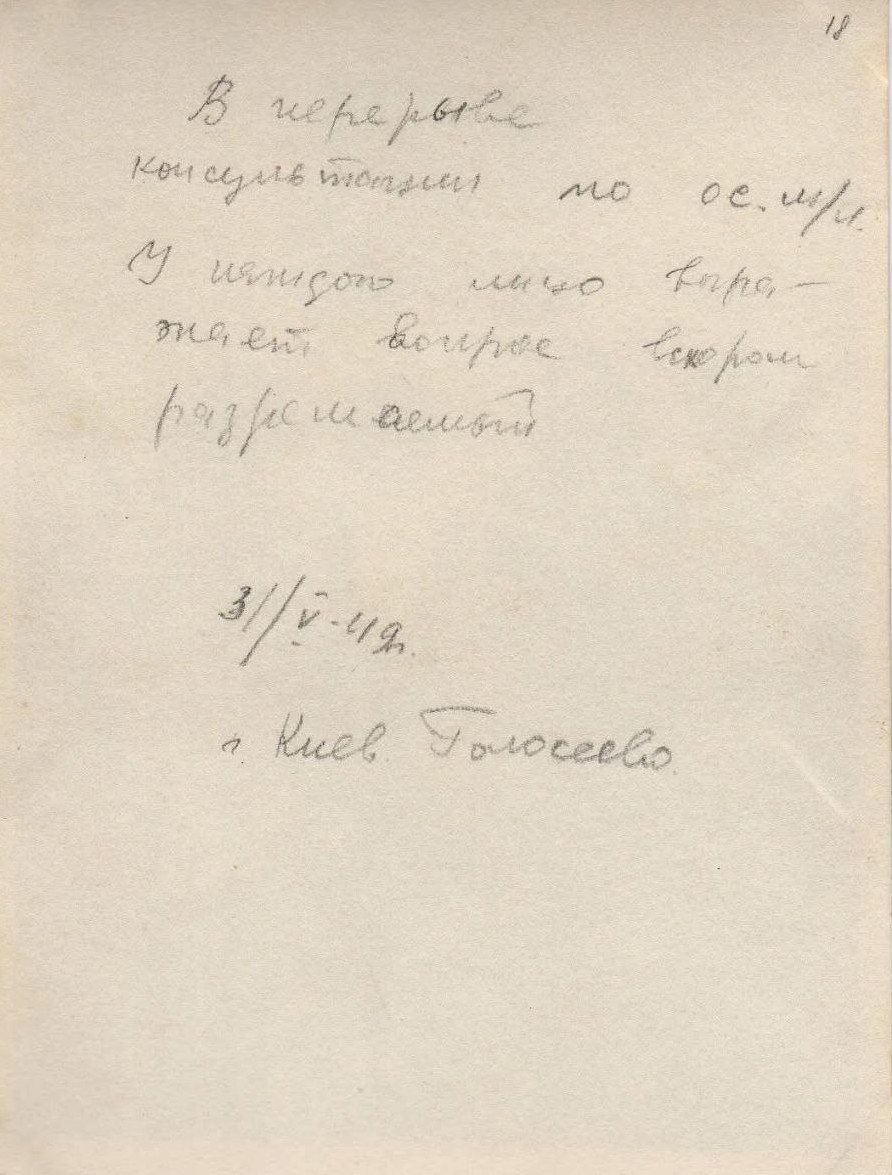 18
В перерыве
консультации по ос. м/л.
У каждого лицо выра-
жает вопрос вскором
разрешаемый
31/V-49г.
г Киев. Голосеево.